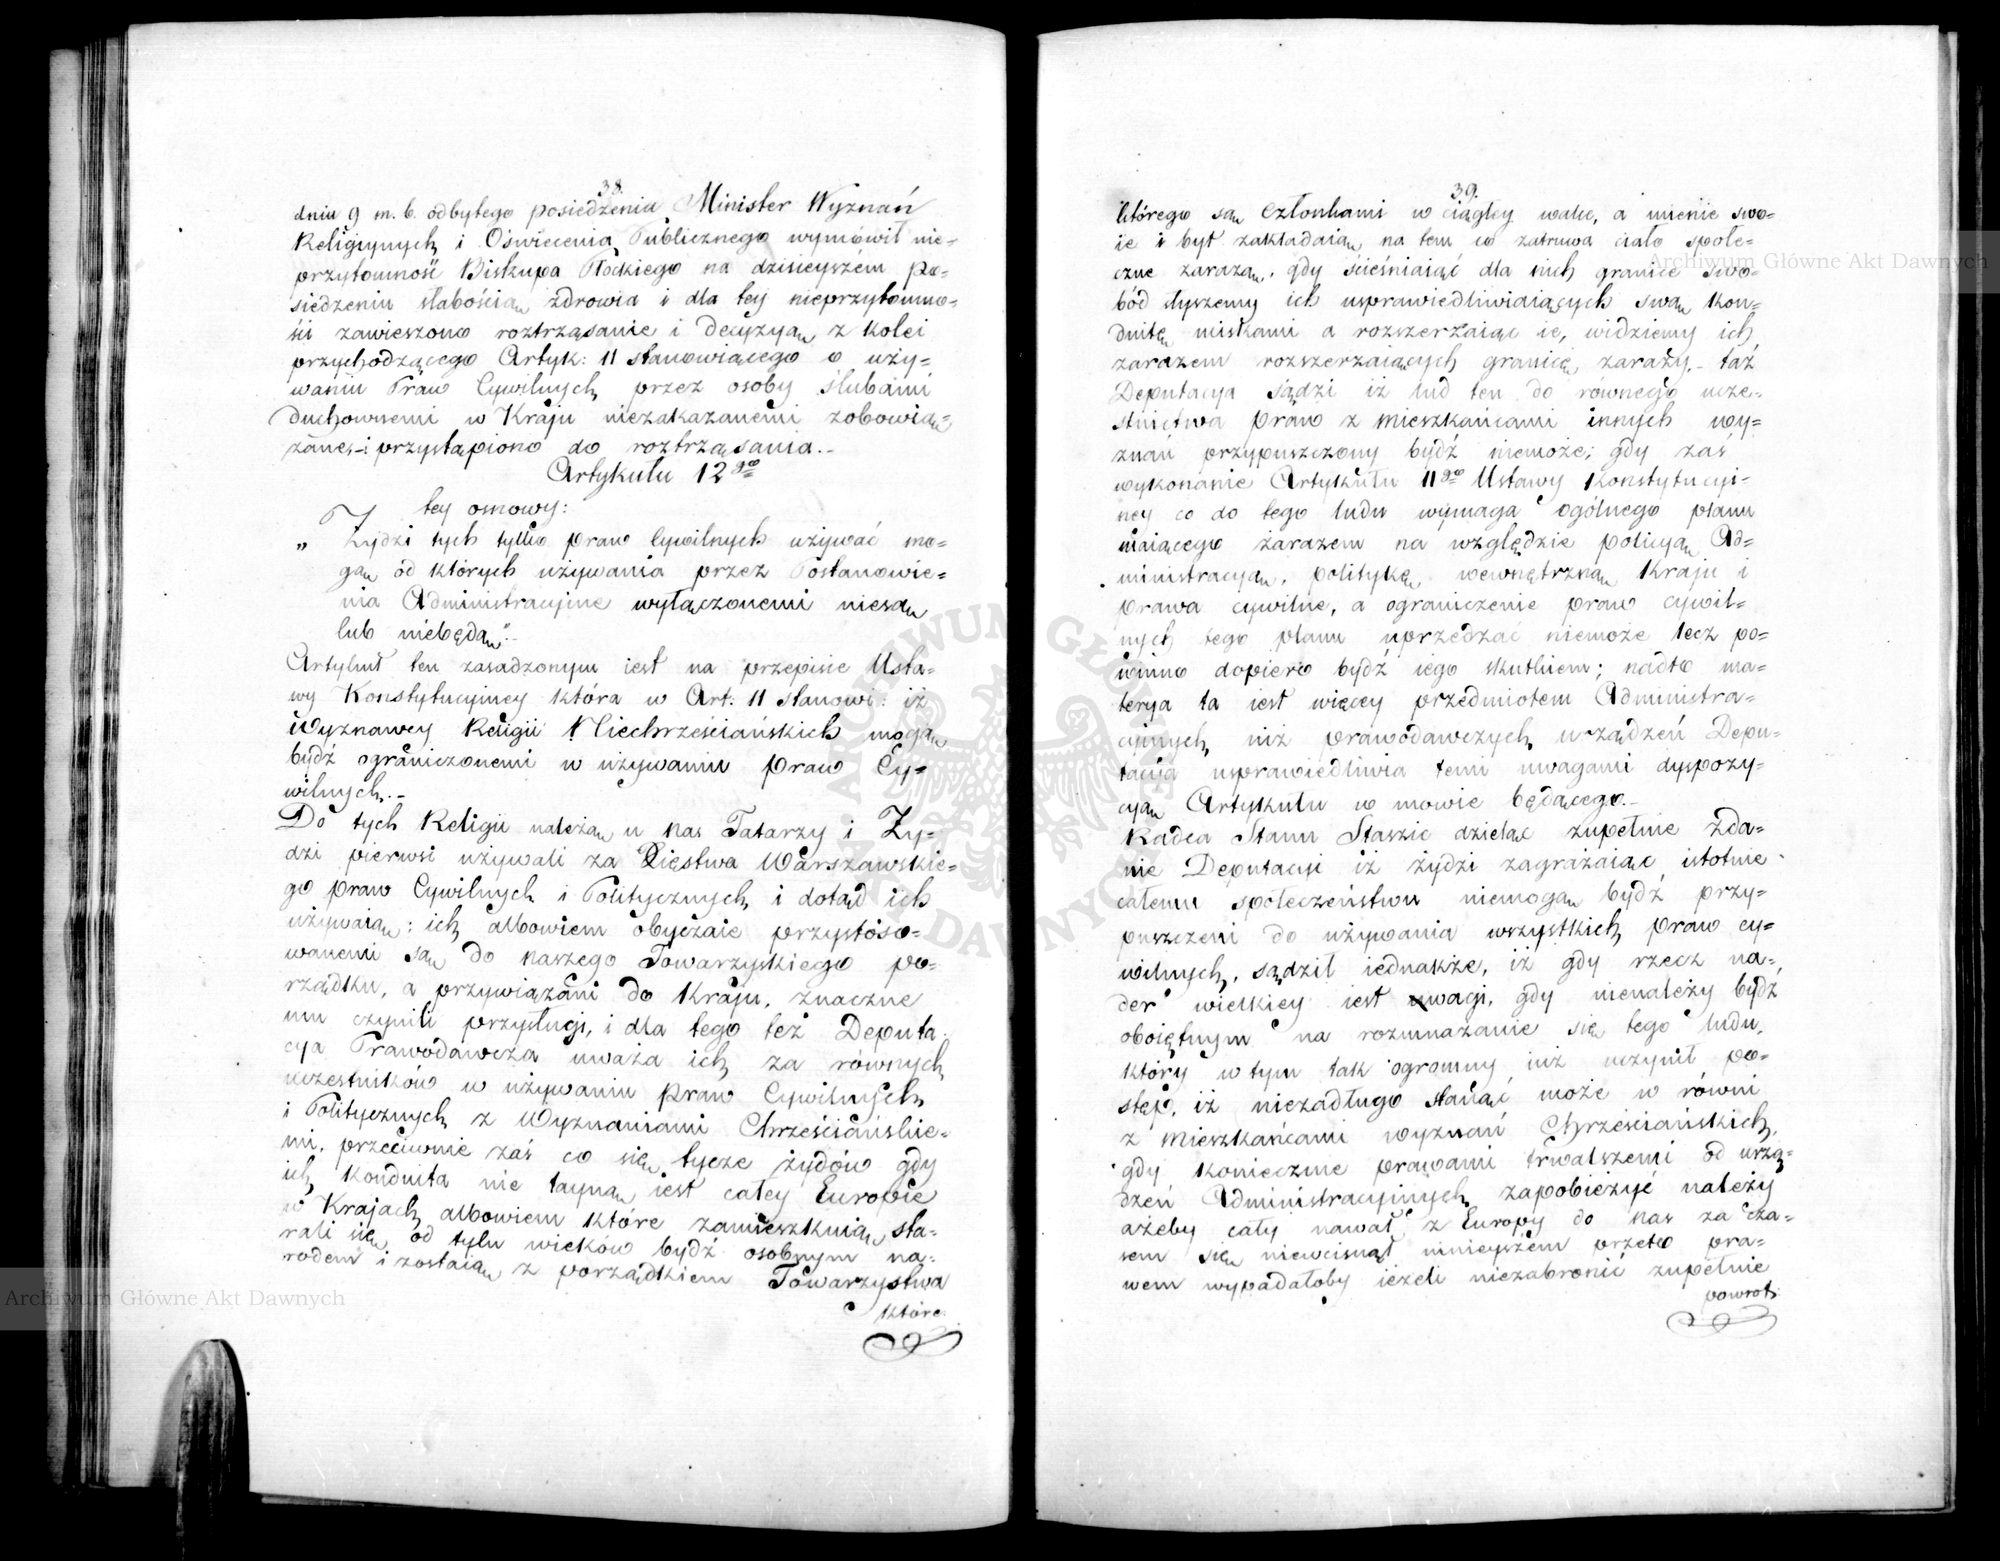 38.
dniu 9 m. b. odbytego posiedzenia Minister Wyznań
Religiynych i Oświecenia Publicznego wymówił nie=
przytomność Biskupa Płockiego na dzisieyszém po=
siedzeniu słabością zdrowia i dla tey nieprzytomno=
ści zawieszono roztrząsanie i decyzyą z kolei
przychodzącego Artyk: 11 stanowiącego o uży=
waniu Praw Cywilnych przez osoby ślubami
duchownemi w Kraju niezakazanemi zobowią=
zane,- i przystąpiono do roztrząsania.-
Artykułu 12go
tey osnowy:
„ Żydzi tych tylko praw Cywilnych używać mo=
gą od których używania przez Postanowie=
nia Administracyine wyłączonemi niesą
lub niebędą".-
Artykuł ten zasadzonym iest na przepisie Usta=
wy Konstytucyiney która w Art: 11 stanowi: iż
Wyznawcy Religii Niechrześciańskich mogą
bydź ograniczonemi w używaniu praw Cy=
wilnych.-
Do tych Religii należą u nas Tatarzy i Ży=
dzi pierwsi używali za Xięstwa Warszawskie=
go praw Cywilnych i Politycznych i dotąd ich
używaią: ich albowiem obyczaie przystóso=
wanemi są do naszego Towarzyskiego po=
rządku, a przywiązani do Kraju, znaczne
mu czynili przysługi, i dla tego też Deputa=
cya Prawodawcza uważa ich za równych
uczestników w używaniu praw Cywilnych
i Politycznych z Wyznaniami Chrześciańskie=
mi, przeciwnie zaś co się tycze żydów gdy
ich kondnita nie tayną iest całey Europie
w Krajach albowiem które zamieszkuią sta=
rali się od tylu wieków bydź osobnym na=
rodem i zostaią z porządkiem Towarzystwa
które
39.
którego są członkami w ciągłey walce, a mienie swo=
ie i byt zakładaią na tem co zatruwa ciało społe=
czne zarazą, gdy ścieśniaiąć dla nich granice swo=
bód słyszemy ich usprawiedliwiaiących swą kon=
dnitę uciskami a rozszerzaiąc ie, widziemy ich
zarazem rozszerzaiących granicę zarazy,- taż
Deputacya sądzi iż lud ten do równego ucze=
stnictwa praw z mieszkańcami innych wy=
znań przypuszczony bydź niemoże; gdy zaś
wykonanie Artykułu 11go Ustawy Konstytucyi=
ney co do tego ludu wymaga ogólnego planu
maiącego zarazem na względzie policyą Ad=
ministracyą, politykę wewnętrzną Kraju i
prawa cywilne, a ograniczenie praw cywil=
nych tego planu uprzedzać niemoże lecz po=
winno dopiero bydź iego skutkiem; nadto ma=
terya ta iest więcey przedmiotem Administra=
cyinych niż prawodawczych urządzeń Depu=
tacya usprawiedliwia temi uwagami dyspozy=
cyą Artykułu w mowie będącego.-
Radca Stanu Staszic dzieląc zupełnie zda=
nie Deputacyi iż żydzi zagrażaiąc istotnie
całemu społeczeństwu niemogą bydź przy=
puszczeni do używania wszystkich praw cy=
wilnych, sądził iednakże, iż gdy rzecz na=
der wielkiey iest uwagi, gdy nienależy bydź
oboiętnym na rozmnażanie się tego ludu,
który w tym tak ogromny iuż uczynił po=
stęp, iż niezadługo stanąć może w równi
z Mieszkańcami wyznań Chrześciańskich,
gdy koniecznie prawami trwalszemi od urzą=
dzeń Administracyinych zapobieżyć należy
ażeby cały nawał z Europy do nas za cza=
sem się niewcisnął ninieyszém przeto pra=
wem wypadałoby ieżeli niezabronić zupełnie
powrot:
Archiwum Główne Akt Dawnych
Archiwum Główne Akt Dawnych
ARCHIWUM GŁÓWNE AKT DAWNYCH